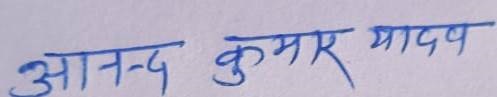 आनन्द कुमार यादव